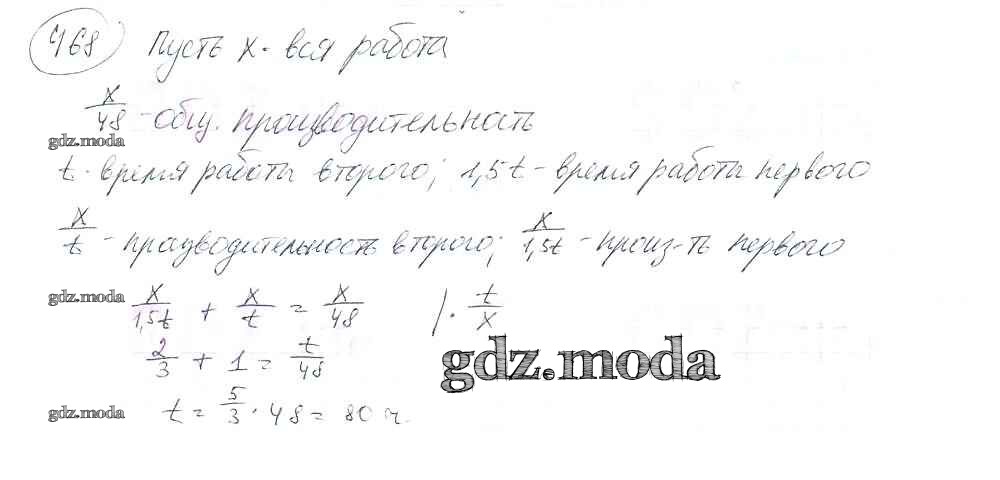 468 Пусть x - вся работа
x/48 - общ. производительность
gdz.moda
t - время работы второго; 1,5t - время работы первого
x/t - производительность второго; x/1,5t - произ-ть первого
gdz.moda x/1,5t + x/t = x/48 | · t/x
2/3 + 1 = t/48
gdz.moda
gdz.moda t = 5/3 · 48 = 80 ч.